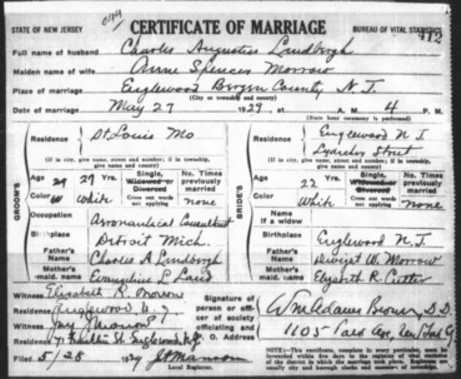 STATE OF NEW JERSEY copy CERTIFICATE OF MARRIAGE BUREAU OF VITAL STATISTICS 412
Full name of husband Charles Augustus Lindbergh
Maiden name of wife Anne Spencer Morrow
Place of marriage Englewood Bergen County N. J.
(City or township and county)
Date of marriage May 27 1929, at A. M. 4 P. M.
(State hour ceremony is performed)
GROOM'S
Residence St Louis Mo
(If in city, give name, street and number; if in township, give name and county)
Age 29 29 Yrs. Single, Widowed or Divorced No. Times previously married
Color W White Cross out words not applying none
Occupation Aeronautical Consultant
Birthplace Detroit Mich.
Father's Name Charles A Lindbergh
Mother's maid. name Evangeline L Land
BRIDE'S
Residence Englewood N J
Lydecker Street
(If in city, give name, street and number; if in township, give name and county)
Age 22 Yrs. Single, Widowed or Divorced No. Times previously married
Color White Cross out words not applying none
Name If a widow
Birthplace Englewood N. J.
Father's Name Dwight W. Morrow
Mother's maid. name Elizabeth R. Cutter
Witness Elizabeth R. Morrow
Residence Englewood N. J.
Witness Jay Morrow
Residence St Englewood N.J.
Filed 5/28 1929
Local Registrar.
Signature of person or officer of society officiating and P. O. Address Wm Adams Brown, D.D.
1105 Park Ave,
NOTE:—This certificate, complete in every particular, must be forwarded within five days to the registrar of vital statistics of the district in which the marriage took place.